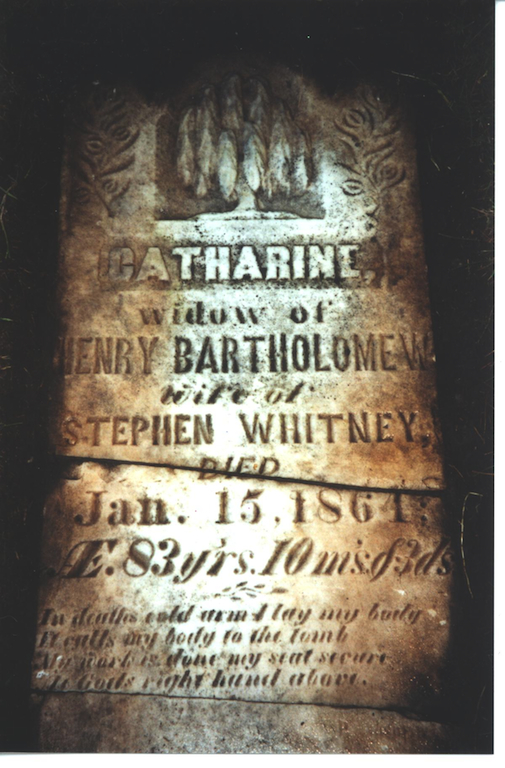 CATHARINE,
widow of
HENRY BARTHOLOMEW
wife of
STEPHEN WHITNEY,
DIED
Jan. 15, 1864;
Æ. 83 y'rs. 10 m's. & 3 ds
In deaths cold arms I lay my body
It calls my body to the tomb
My work is done my seat secure
At Gods right hand above.